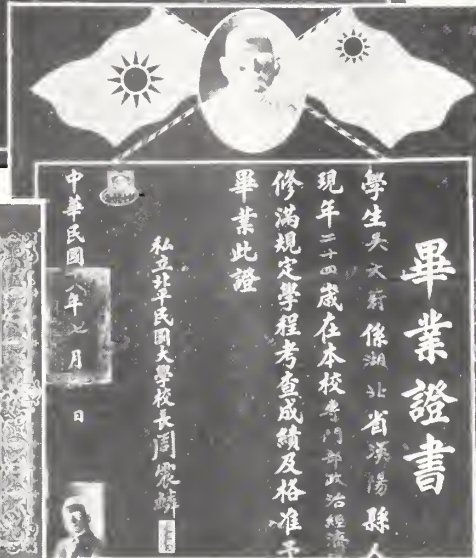 畢業證書
學生吳文蔚係湖北省漢陽縣人
現年二十四歲在本校專門部政治經濟
修滿規定學程考查成績及格准予
畢業此證
私立北平民國大學校長周震鱗
中華民國八年七月 日